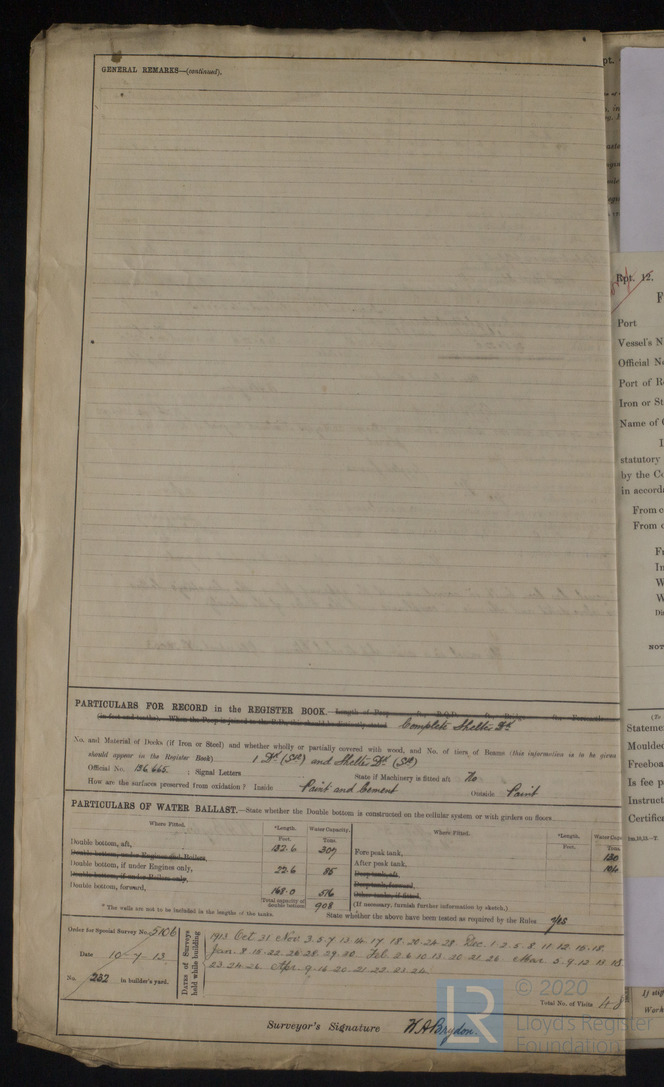 GENERAL REMARKS—(continued).
PARTICULARS FOR RECORD in the REGISTER BOOK. Length of Poop ft., R.Q.D. ft., Bridge ft., Forecastle
(in feet and tenths). When the Poop is joined to the B.D., this should be distinctly stated Complete Shelter Dk
No. and Material of Decks (if Iron or Steel) and whether wholly or partially covered with wood, and No. of tiers of Beams (this information is to be given
should appear in the Register Book) 1 Dk (Stl) and Shelter Dk (Stl)
Official No. 136,665 ; Signal Letters State if Machinery is fitted aft No
How are the surfaces preserved from oxidation? Inside Paint and Cement Outside Paint
PARTICULARS OF WATER BALLAST.—State whether the Double bottom is constructed on the cellular system or with girders on floors
Where Fitted. *Length. Water Capacity. Where Fitted. *Length. Water Capa
Feet. Tons. Feet. Tons.
Double bottom, aft, 132.6 307 Fore peak tank, 130
Double bottom, under Engines and Boilers, After peak tank, 106
Double bottom, if under Engines only, 22.6 85 Deep tank, aft,
Double bottom, if under Boilers only, Deep tank, forward,
Double bottom, forward, 168.0 516 Other tanks, if fitted,
Total capacity of double bottom 908 (If necessary, furnish further information by sketch.)
* The wells are not to be included in the lengths of the tanks. State whether the above have been tested as required by the Rules Yes
Order for Special Survey No. 5106
Date 10-7-13
No. 232 in builder's yard.
Dates of Surveys held while building
1913 Oct 31 Nov 3.5.7.13.14.17.18.20.24.28. Dec 1.2.5.8.11.12.15.18.
Jan. 8.15.22. 28.29.30 Feb 2.6.10.13.20.21.26 Mar 5.9.12.13.18
23.24.26 Apr. 9.16.20.21.22.23.24
Total No. of Visits
Surveyor's Signature W.A. Brydon.
Rpt. 12.
Port
Vessel's N
Official No
Port of Re
Iron or St
Name of
statutory
by the Co
in accord
From
From
NOT
(To
Stateme
Moulded
Freeboa
Is fee p
Instruct
Certific
Work
LR
© 2020
Lloyd's Register
Foundation